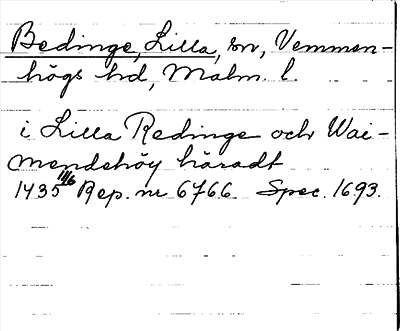 Bedinge, Lilla, sn, Vemmen-
högs hd, Malm. l.
i Lilla Redinge och Wai-
mendshöy häradt
1435 11/6 Rep. nr 6766. Spec. 1693.